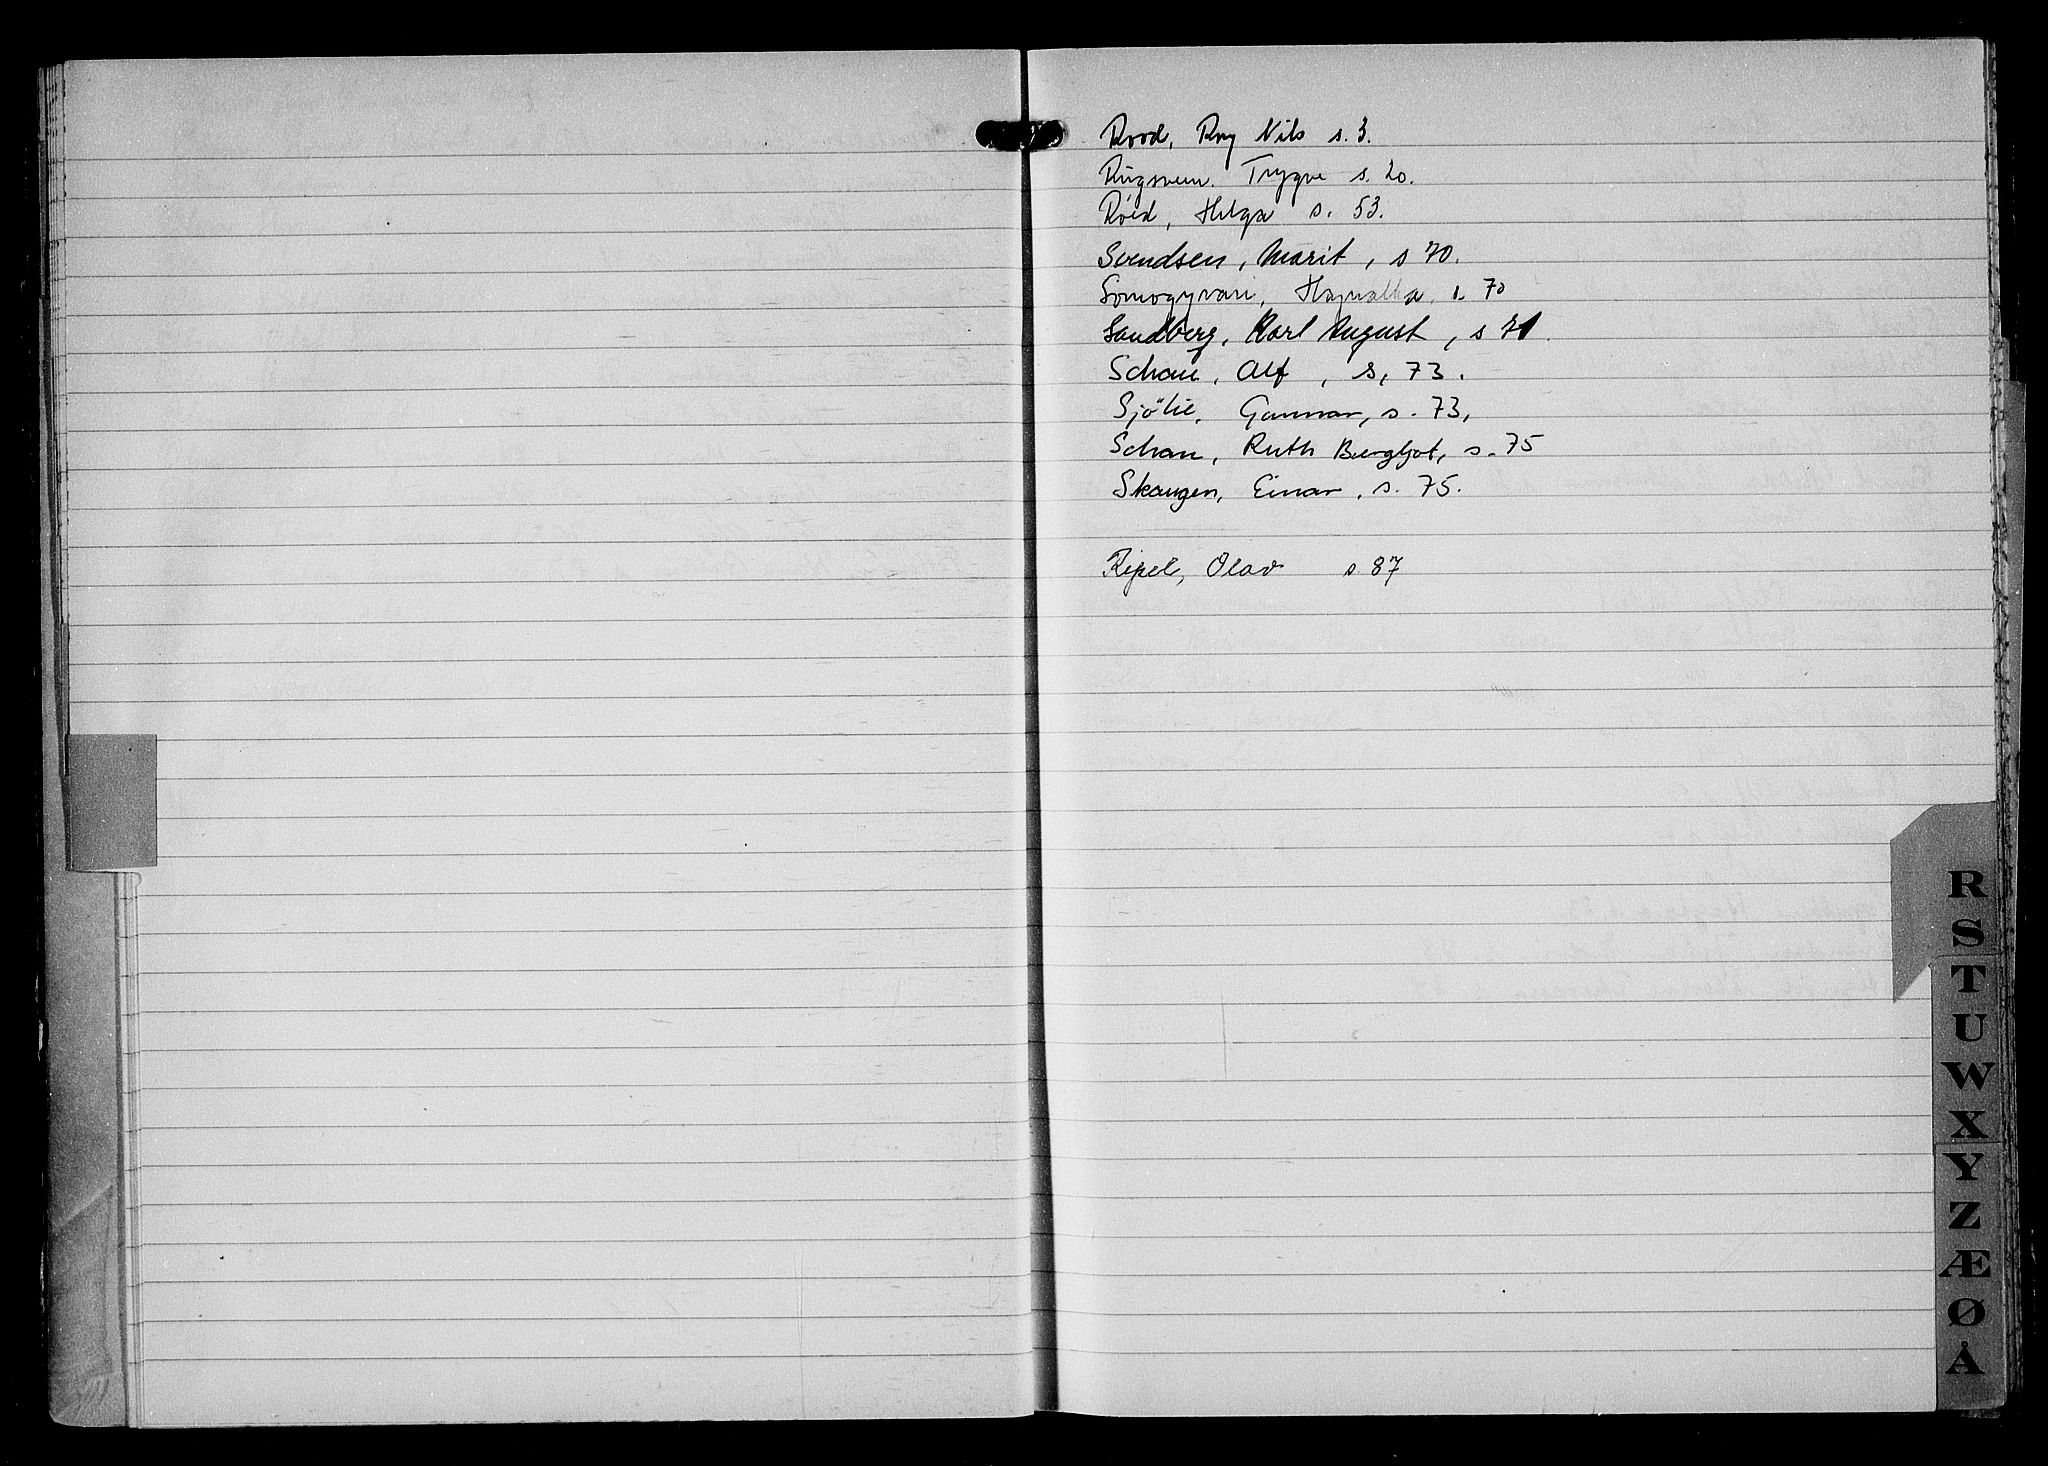 Rood, Roy Nils s. 3.
Ringsveen. Trygve s. 20.
Röed, Helga s. 53.
Svendsen, Marit, s 70.
Somogyvari, Hajnalka. s. 70
Sandberg, Karl August, s 71.
Schau, Alf, s, 73.
Sjölie, Gunnar, s. 73,
Schau, Ruth Bergljot, s. 75
Skaugen, Einar, s. 75.
Ripel, Olav s. 87
R
S
T
U
W
X
Y
Z
Æ
Ø
Å